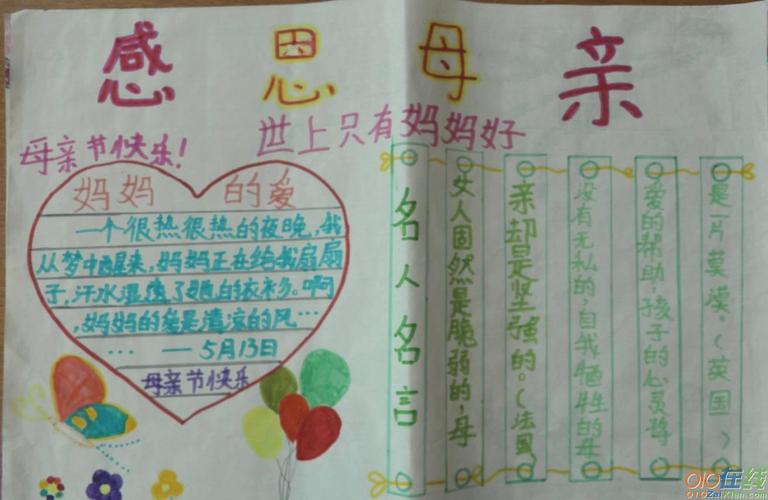 感恩母亲
世上只有妈妈好
母亲节快乐!
妈妈的爱
一个很热很热的夜晚,我
从梦中醒来,妈妈正在给我扇扇
子,汗水湿透了她的衣衫。啊
,妈妈的爱是清凉的风…
… — 5月13日
母亲节快乐
名人名言
女人固然是脆弱的,母
亲却是坚强的。(法国)
没有无私的,自我牺牲的母
爱的帮助,孩子的心灵将
是一片荒漠。(英国)
010在线
010zaixian.com